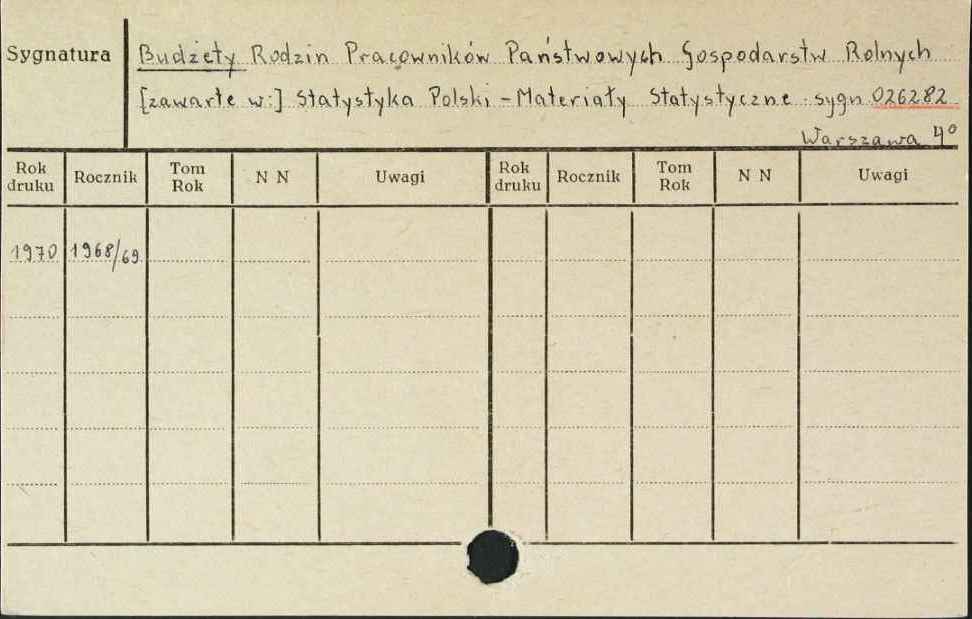 Sygnatura
Budżety Rodzin Pracowników Państwowych Gospodarstw Rolnych
[zawarte w:] Statystyka Polski - Materiały Statystyczne sygn 026282
Warszawa 4º
Rok druku Rocznik Tom Rok N N Uwagi Rok druku Rocznik Tom Rok N N Uwagi
1970 1968/69